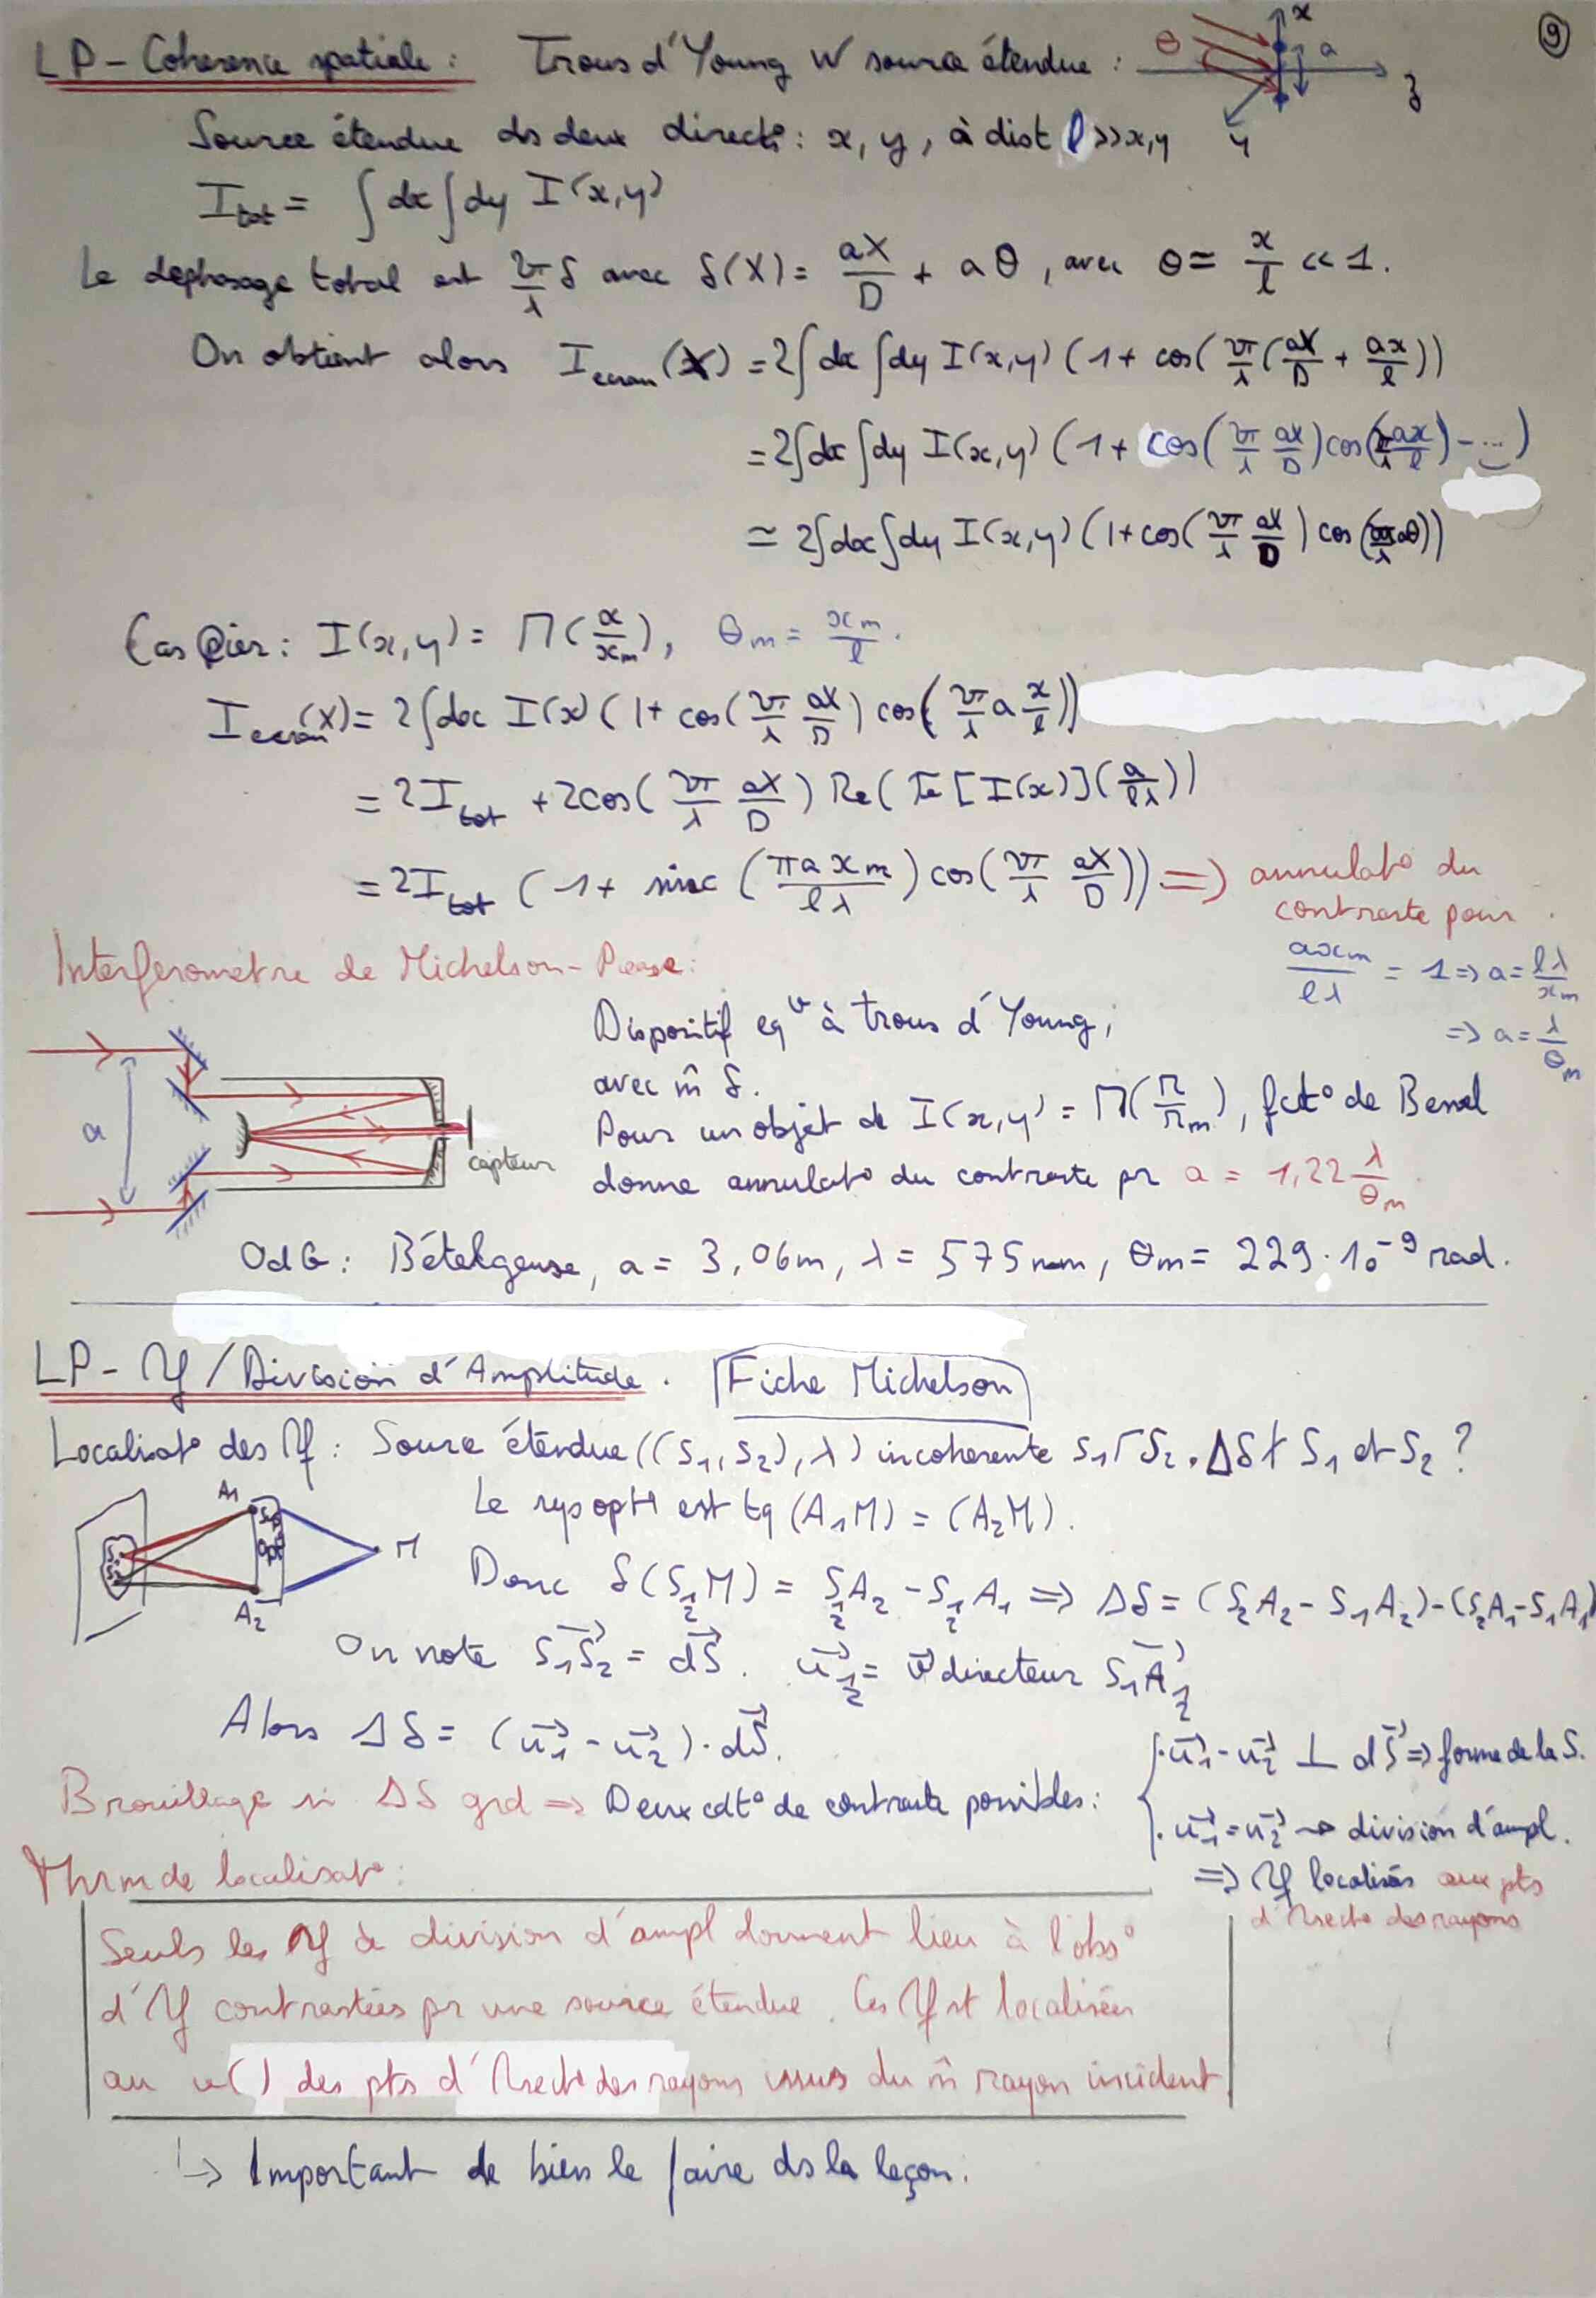 LP - Cohérence spatiale : Trous d'Young W source étendue : θ x a z y
⑨
Source étendue ds deux direct° : x, y, à dist l >> x,y
I_tot = ∫dx∫dy I(x,y)
Le déphasage total est 2π/λ δ avec δ(X) = aX/D + aθ, avec θ ≃ x/l << 1.
On obtient alors I_écran(X) = 2∫dx∫dy I(x,y) (1 + cos(2π/λ (aX/D + ax/l))
= 2∫dx∫dy I(x,y) (1 + cos(2π/λ aX/D) cos(2π/λ ax/l) - ...)
≃ 2∫dx∫dy I(x,y) (1 + cos(2π/λ aX/D) cos(2π/λ aθ))
Cas Qier : I(x,y) = Π(x/x_m), θ_m = x_m/l.
I_écran(X) = 2∫dx I(x) (1 + cos(2π/λ aX/D) cos(2π/λ a x/l))
= 2I_tot + 2cos(2π/λ aX/D) Re(TF[I(x)](a/lλ))
= 2I_tot (1 + sinc(πa x_m/lλ) cos(2π/λ aX/D)) => annulat° du
contraste pour
a x_m/lλ = 1 => a = lλ/x_m
=> a = λ/θ_m
Interféromètre de Michelson-Pease :
Dispositif eq^v à trous d'Young,
avec m̂ δ.
Pour un objet de I(x,y) = Π(r/r_m), fct° de Bessel
donne annulat° du contraste pr a = 1,22 λ/θ_m.
a
capteur
OdG : Bételgeuse, a = 3,06m, λ = 575nm, θ_m = 229·10⁻⁹ rad.
LP - Ψ / Division d'Amplitude. Fiche Michelson
Localisat° des Ψ : Source étendue ((S₁,S₂),λ) incohérente S₁ΓS₂. Δδ ≠ S₁ et S₂ ?
A₁
Le sys opt^l est tq (A₁M) = (A₂M).
S₁ S₂ Sys Opt M
A₂
Donc δ(S_{1/2}M) = S_{1/2}A₂ - S_{1/2}A₁ => Δδ = (S₂A₂ - S₁A₂) - (S₂A₁ - S₁A₁)
On note S₁S₂→ = dS→. u→_{1/2} = v→ directeur S₁A→_{1/2}
Alors Δδ = (u₁→ - u₂→)·dS→.
Brouillage si Δδ grd => Deux cdt° de contraste possibles :
· u₁→ - u₂→ ⊥ dS→ => forme de la S.
· u₁→ = u₂→ ⇝ division d'ampl.
=> Ψ localisés aux pts
d'∩sect° des rayons
Thrm de localisat° :
Seuls les Ψ de division d'ampl donnent lieu à l'obs°
d'Ψ contrastées pr une source étendue. Ces Ψ st localisées
au v() des pts d'∩sect° des rayons issus du m̂ rayon incident
↳ Important de bien le faire ds la leçon.